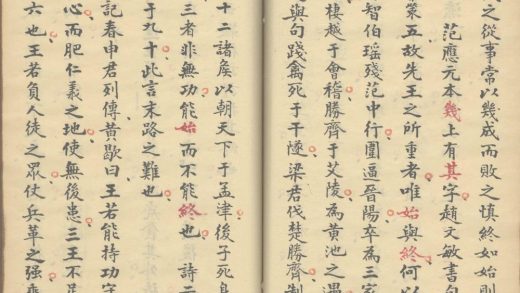 之從事常以幾成而敗之慎終如始則
范應元本幾上有其字趙文敏書句
策五故先王之所重者唯始與終何以
智伯瑤殘范中行圍逼晉陽卒為三家
棲越于會稽勝齊于艾陵為黃池之遇
與句踐禽死于干隧梁君伐楚勝齊制
十二諸侯以朝天下于孟津後子死身
三者非無功能始而不能終也 詩二
于九十此言末路之難也
記春申君列傳黃歇曰王若能持功守
心而肥仁義之地使無後患三王不足
六也王若負人徒之眾仗兵革之强乘